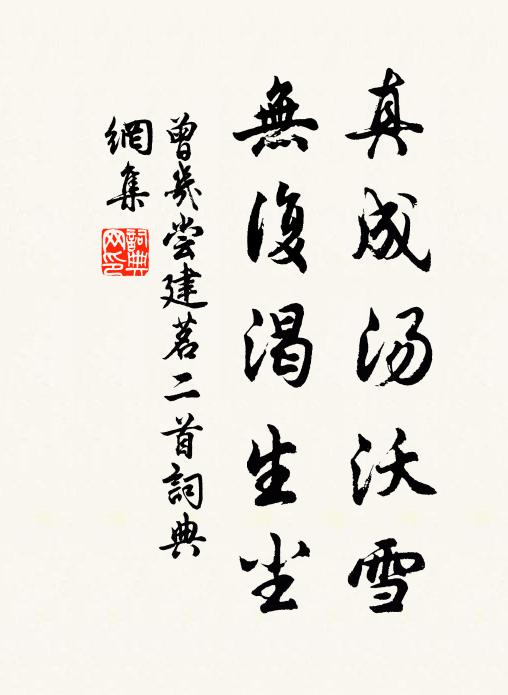 真成汤沃雪
無復渴生尘
曾幾尝建茗二首詞典
網集
詞典
网印